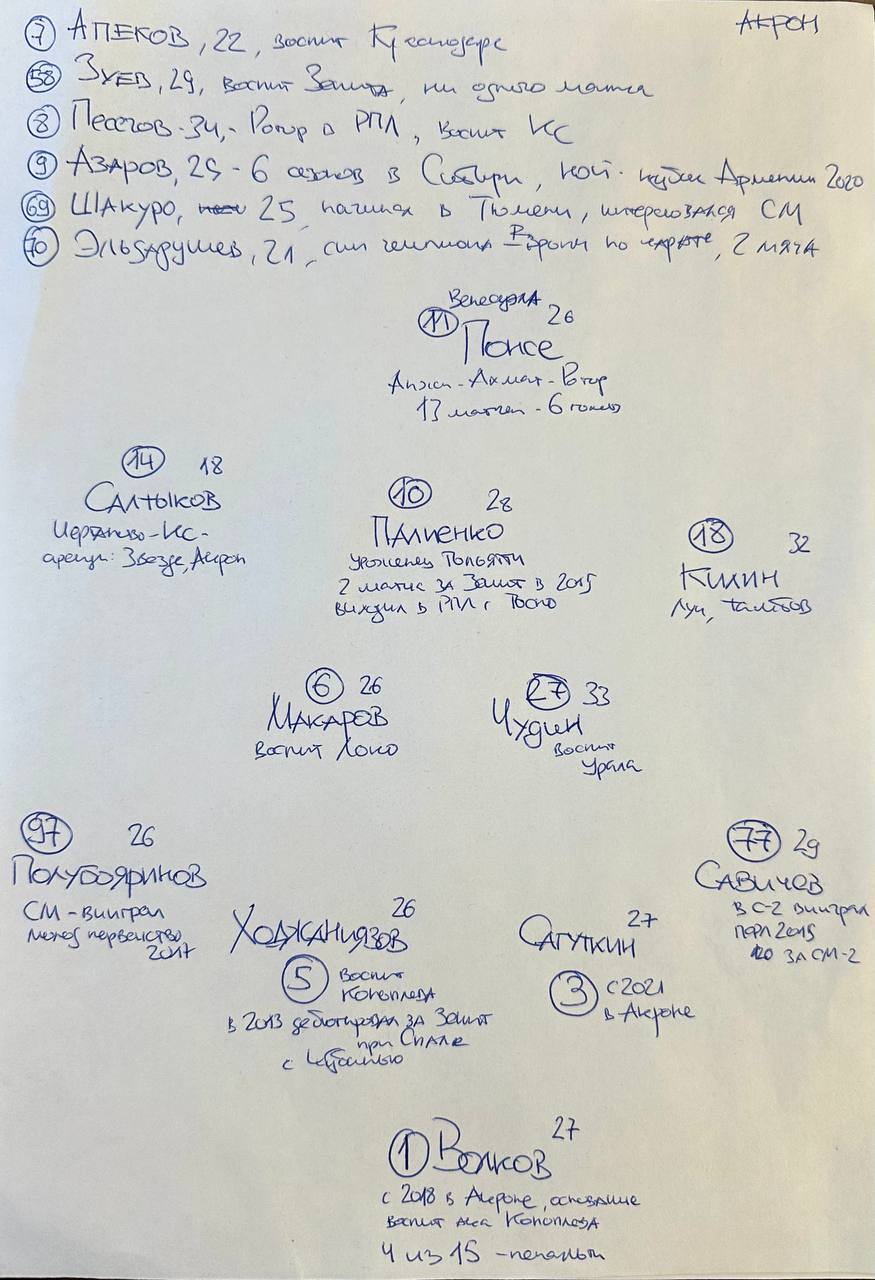 АКРОН
7 АПЕКОВ, 22, воспит Краснодара
58 ЗУЕВ, 29, воспит Зенита, ни одного матча
8 Песегов - 34, - Ротор в РПЛ, воспит КС
9 АЗАРОВ, 25 - 6 сезонов в Сибири, кубок Армении 2020
69 ШАКУРО, 25 начинал в Тюмени, интересовался СМ
70 ЭЛЬДАРУШЕВ, 21, сын чемпиона Европы по карате, 2 мяча
Венесуэла
11 26
Понсе
Анжи - Ахмат - Ротор
13 матчей - 6 голов
14 18
САЛТЫКОВ
Чертаново - КС -
аренды: Звезда, Акрон
10 28
ПАЛИЕНКО
уроженец Тольятти
2 матча за Зенит в 2015
выходил в РПЛ с Тосно
18 32
КИЛИН
Луч, Тамбов
6 26
МАКАРОВ
Воспит Локо
27 33
Чудин
Воспит
Урала
97 26
ПОЛУБОЯРИНОВ
СМ - выиграл
молод первенство
2017
77 29
САВИЧЕВ
в С-2 выиграл
ПФЛ 2015
120 ЗА СМ-2
26
ХОДЖАНИЯЗОВ
5 Воспит
Коноплева
в 2013 дебютировал за Зенит
при Спалетти
с Кубанью
27
САГУТКИН
3 с 2021
в Акроне
27
1 Волков
с 2018 в Акроне, основание
воспит ака Коноплева
4 из 15 - пенальти